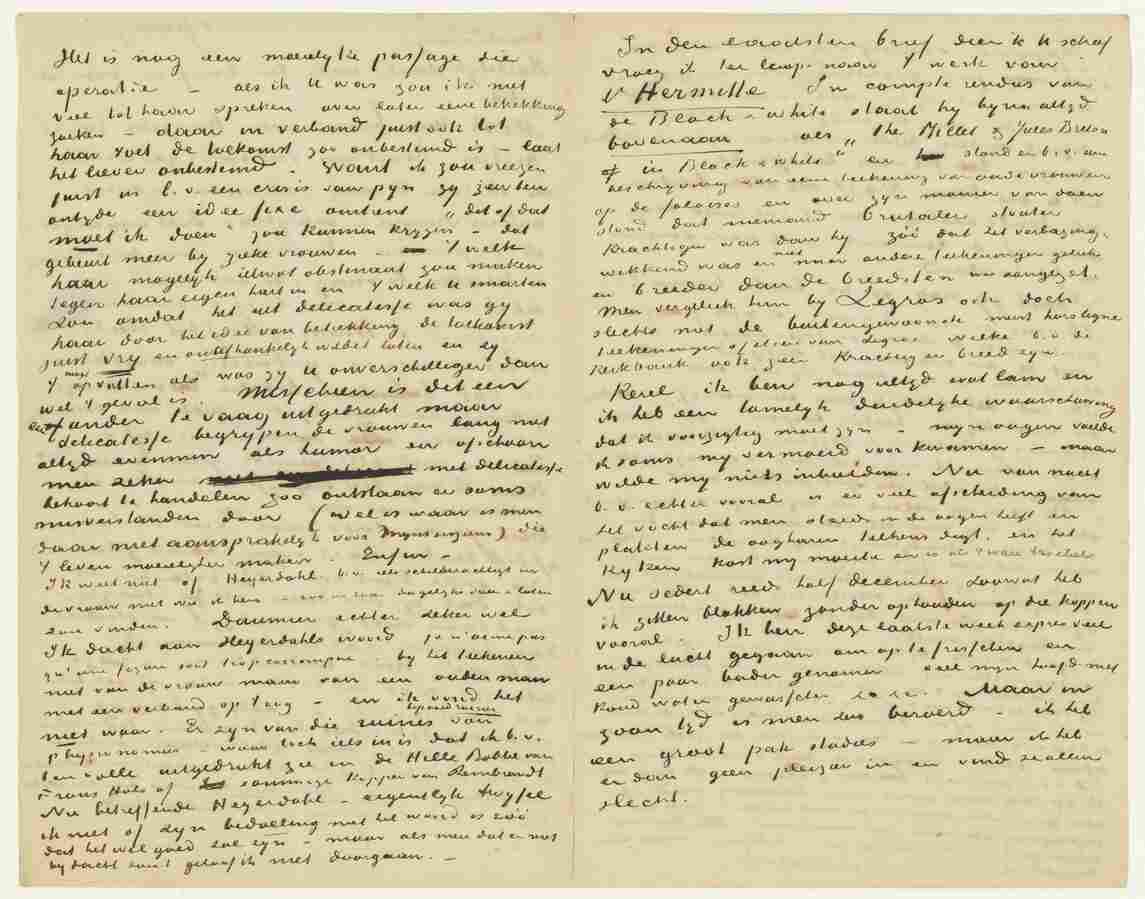 Het is nog een moeielyke passage die
operatie – als ik U was zou ik niet
veel tot haar spreken over later eene betrekking
zoeken – daar in verband juist ook tot
haar voet de toekomst zoo onbestemd is – laat
het liever onbestemd. Want ik zou vreezen
juist in b.v. een crisis van pyn zy zeer ten
ontyde een idée fixe omtrent „dit of dat
moet ik doen” zou kunnen krygen – dat
gebeurt meer by zieke vrouwen – 't welk
haar mogelyk ietwat obstinaat zou maken
tegen haar eigen hart in en 't welk U smarten
zou omdat het uit delicatesse was gy
haar door het idee van betrekking de toekomst
juist vry en onafhankelyk wildet laten en zy
't opvatten als was zy U onverschilliger dan
wel 't geval is. Misschien is dit een
of ander te vaag uitgedrukt maar
delicatesse begrypen de vrouwen lang niet
altyd evenmin als humor en ofschoon
men zeker met delicatesse
behoort te handelen zoo ontstaan er soms
misverstanden door (wel is waar is men
daar niet aansprakelyk voor myns inziens) die
't leven moeielyker maken. Enfin –
Ik weet niet of Heyerdahl b.v. als schilderachtigst in
de vrouw met wie ik ben
zou vinden. Daumier echter zeker wel
Ik dacht aan Heyerdahls woord „je n'aime pas
qu'une figure soit trop corrompue” by het teekenen
niet van de vrouw maar van een ouden man
met een verband op 't oog – en ik vond het
niet waar. Er zyn van die ruines van
physionomies – waar toch iets in is dat ik b.v.
ten volle uitgedrukt zie in de Hille Bobbe van
Frans Hals of sommige koppen van Rembrandt
Nu betreffende Heyerdahl – eigentlyk twyfel
ik niet of zyn bedoeling met het woord is zóó
dat het wel goed zal zyn – maar als men dat er niet
by dacht zou 't geloof ik niet doorgaan. –
In den laatsten brief dien ik U schreef
vroeg ik ter loops naar 't werk van
L'Hermitte In compte rendus van
de Black & white staat hy byna altyd
bovenaan als “the Millet & Jules Breton
in Black & White” en stond en b.v. een
beschryving van eene teekening van oude vrouwen
op de falaises en over zyn manier van doen
stond dat niemand brutaler stouter
krachtiger was dan hy zóó dat het verbazing-
wekkend was en niet naar andere teekeningen geleek
en breeder dan de breedsten was aangezet.
Men vergeleek hem by Legros ook doch
slechts met de buitengewoonste meest hors ligne
teekeningen of etsen van Legros welke b.v. de
kerkbank ook zeer krachtig en breed zyn.
Kerel ik ben nog altyd wat lam en
ik heb een tamelyk duidelyke waarschuwing
dat ik voorzigtig moet zyn – myn oogen voelde
ik soms my vermoeid voor kwamen – maar
wilde my niets inbeelden. Nu van nacht
b.v. echter vooral is er veel afscheiding van
het vocht dat men steeds in de oogen heeft en
plakten de oogharen telkens digt. en het
kyken kost my moeite en is als 't ware troebel
Nu sedert reeds half december zoowat heb
ik zitten blokken zonder ophouden op die koppen
vooral. Ik ben deze laatste week expres veel
in de lucht gegaan om op te frisschen en
een paar baden genomen veel myn hoofd met
koud water gewasschen &c &c. Maar in
zoon tyd is men zoo beroerd – ik heb
een groot pak studies – maar ik heb
er dan geen pleizier in en vind ze allen
slecht.